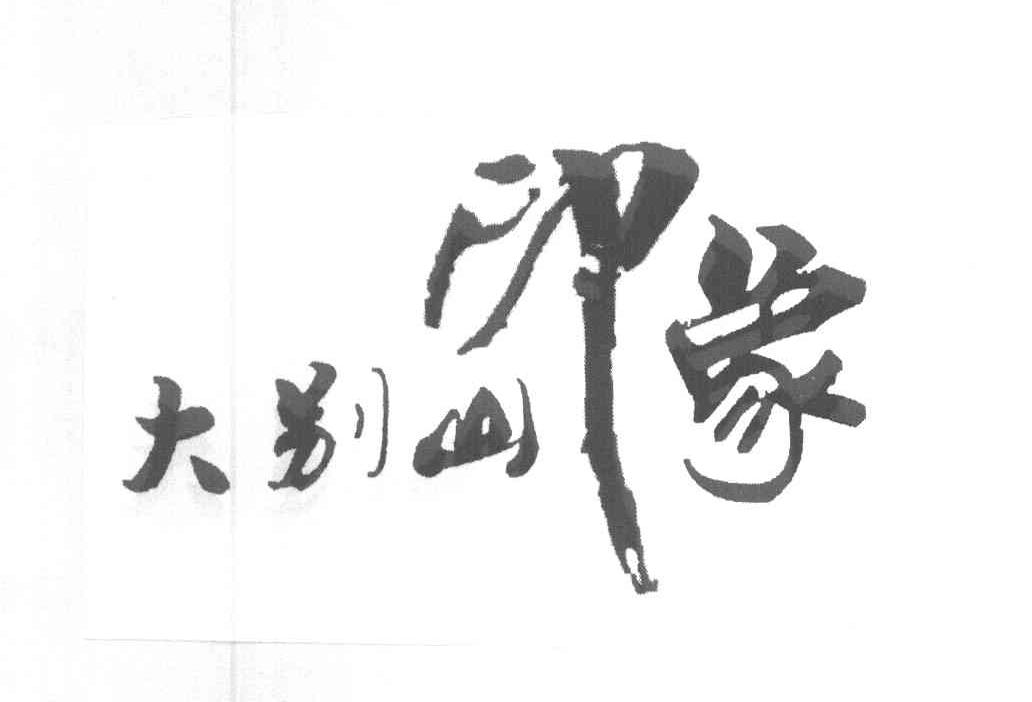 大别山印象